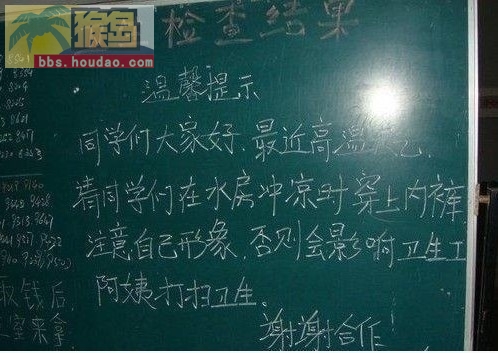 猴岛
bbs.houdao.com
检查结果
温馨提示
同学们大家好.最近高温
请同学们在水房冲凉时穿上内裤
注意自己形象.否则会影响卫生工
阿姨打扫卫生.
谢谢合作
取钱后.
室来拿